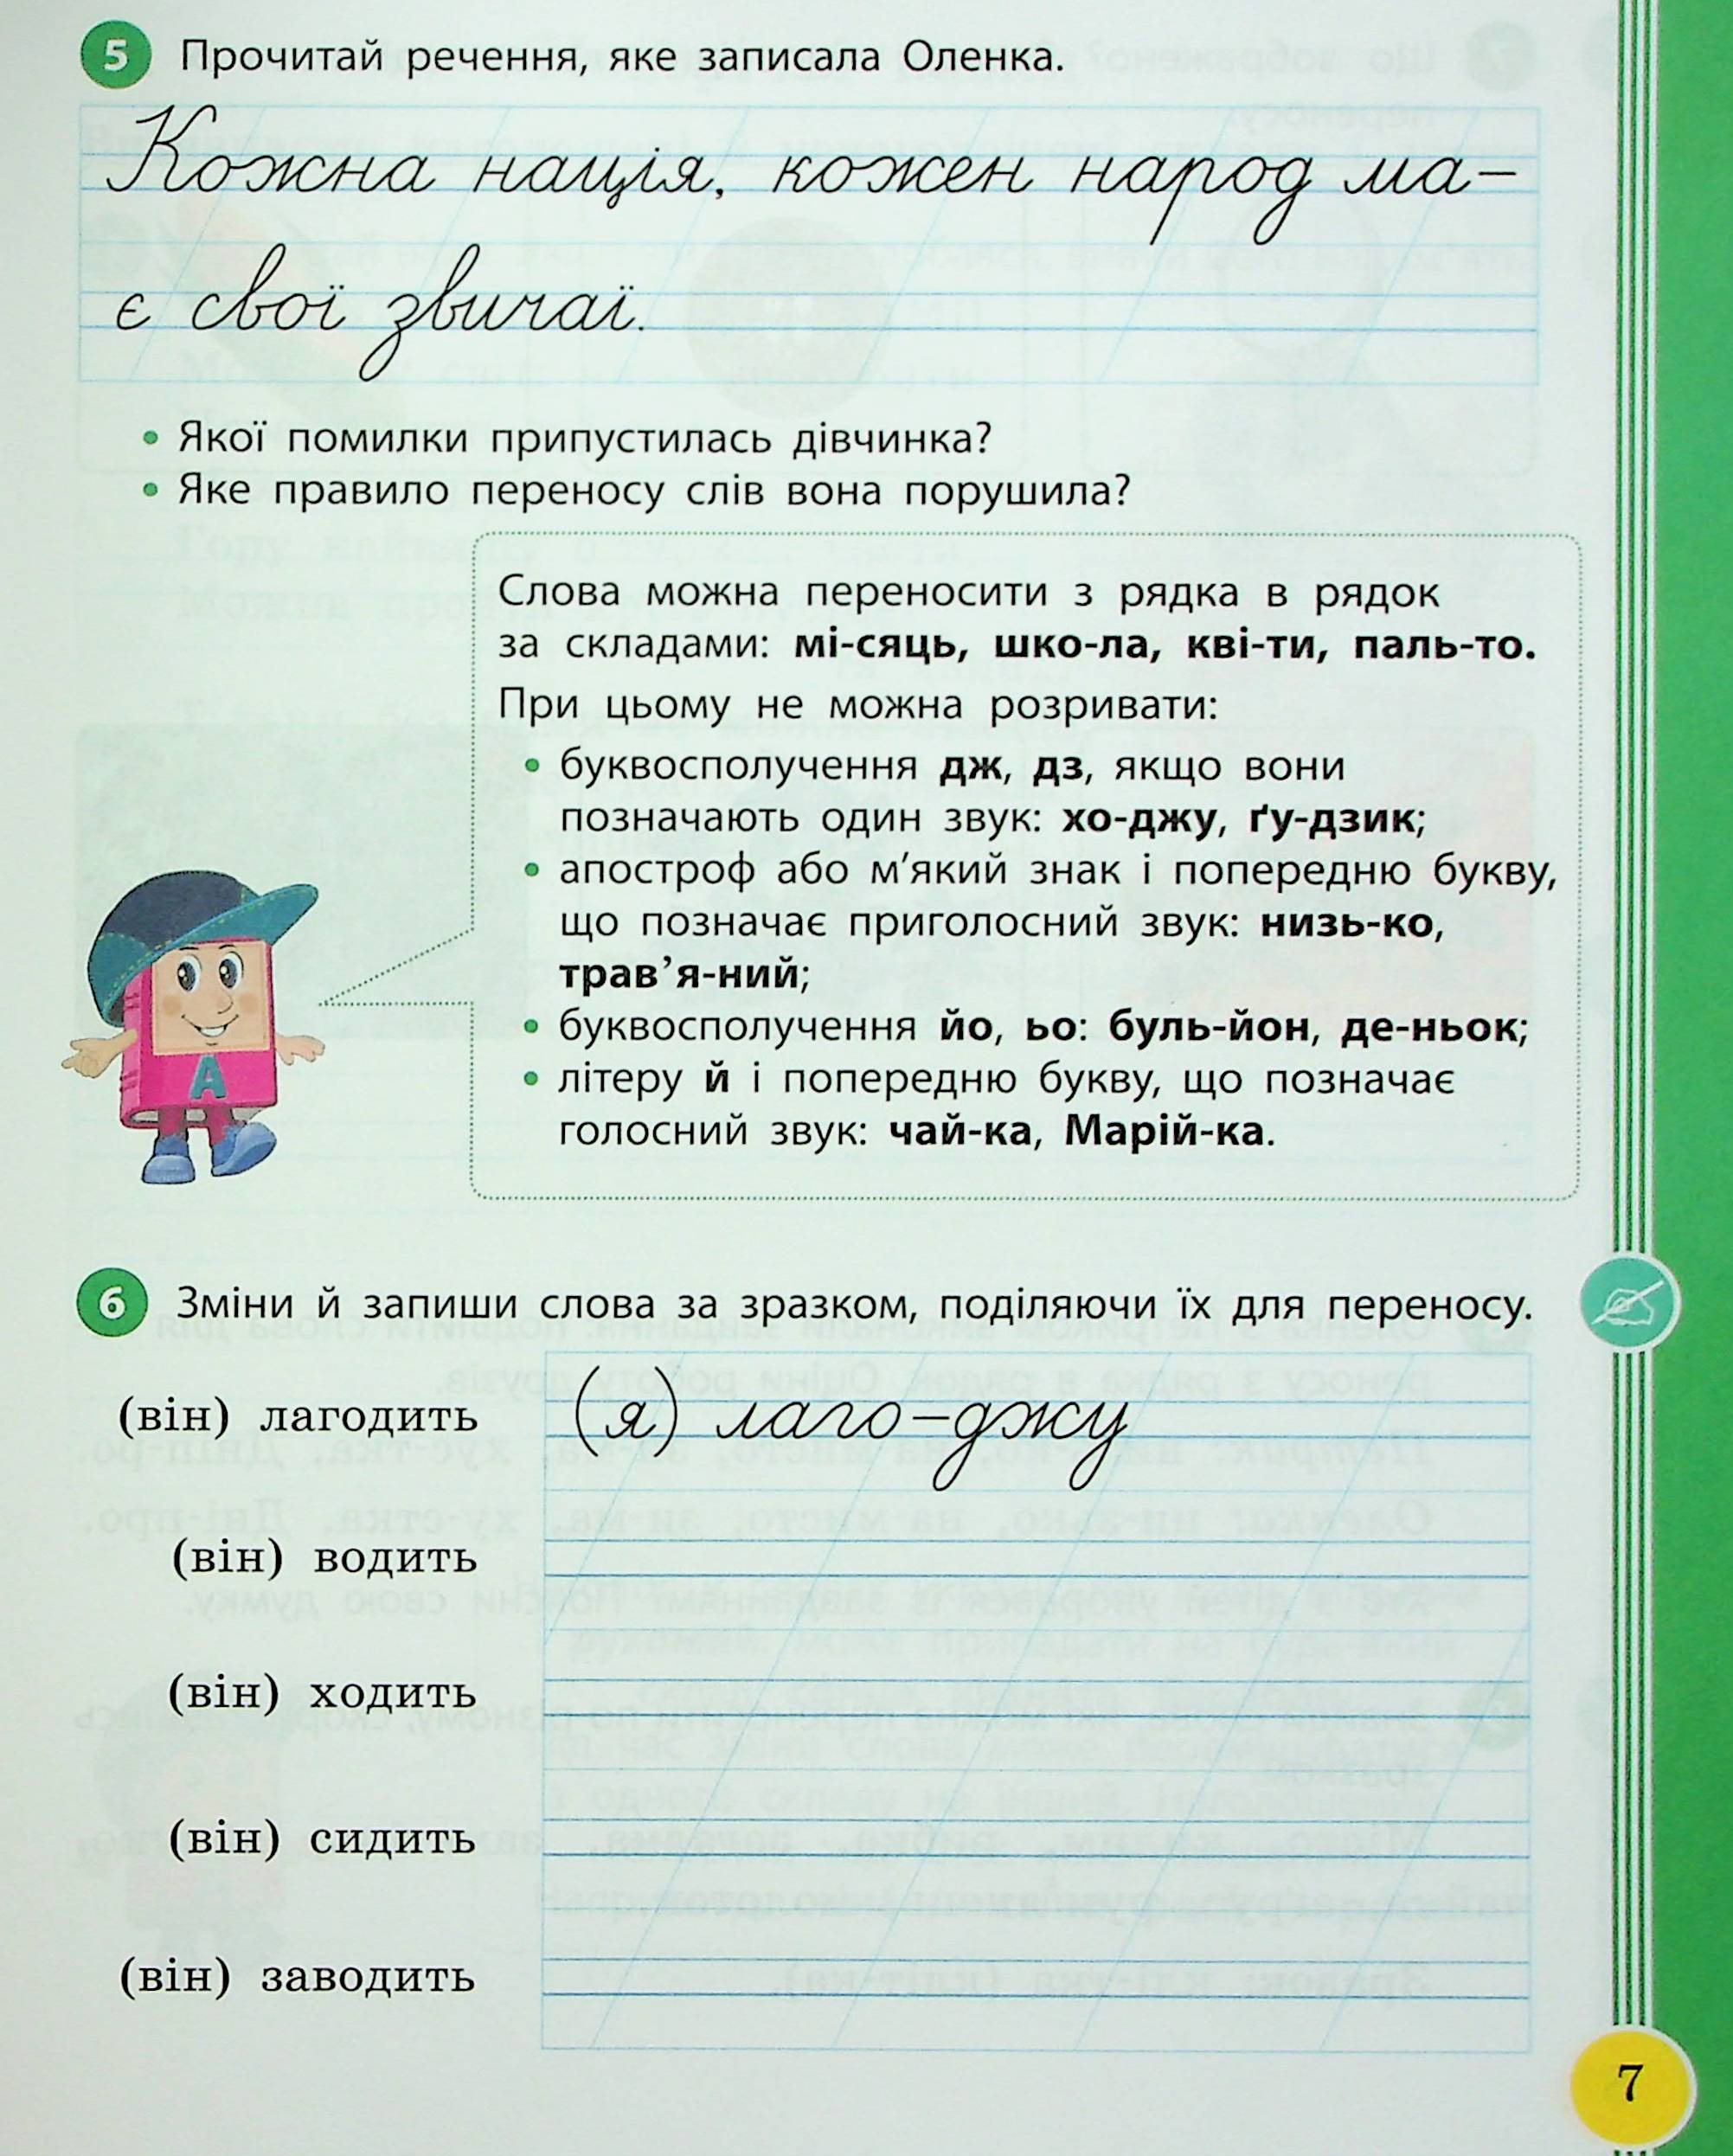 5 Прочитай речення, яке записала Оленка.
Кожна нація, кожен народ ма-
є свої звичаї.
• Якої помилки припустилась дівчинка?
• Яке правило переносу слів вона порушила?
Слова можна переносити з рядка в рядок
за складами: мі-сяць, шко-ла, кві-ти, паль-то.
При цьому не можна розривати:
• буквосполучення дж, дз, якщо вони
позначають один звук: хо-джу, ґу-дзик;
• апостроф або м'який знак і попередню букву,
що позначає приголосний звук: низь-ко,
трав’я-ний;
• буквосполучення йо, ьо: буль-йон, де-ньок;
• літеру й і попередню букву, що позначає
голосний звук: чай-ка, Марій-ка.
А
6 Зміни й запиши слова за зразком, поділяючи їх для переносу.
(він) лагодить (я) лаго-джу
(він) водить
(він) ходить
(він) сидить
(він) заводить
7